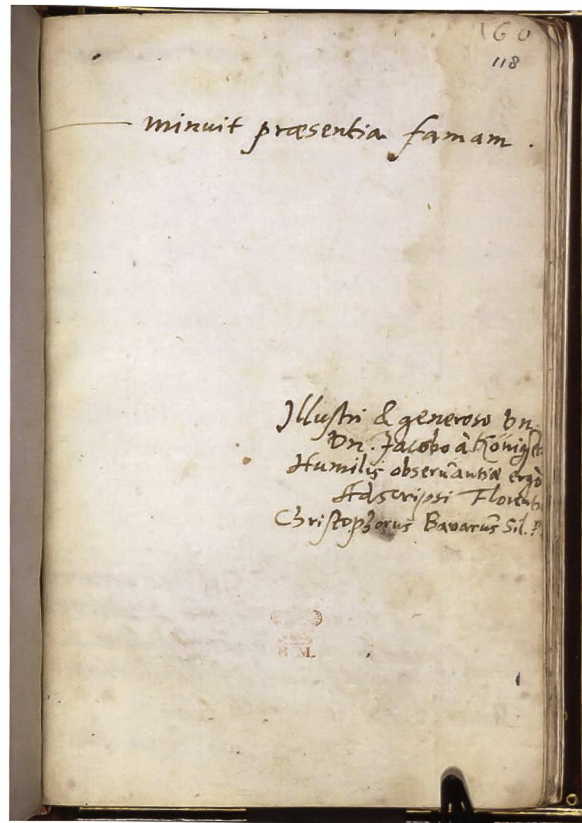 160
118
minuit præsentia famam.
Illustri & generoso Dn
Dn. Jacobo à
Humilis observantiæ ergò
Adscripsi
Christophorus Bavarus Sil.
M.